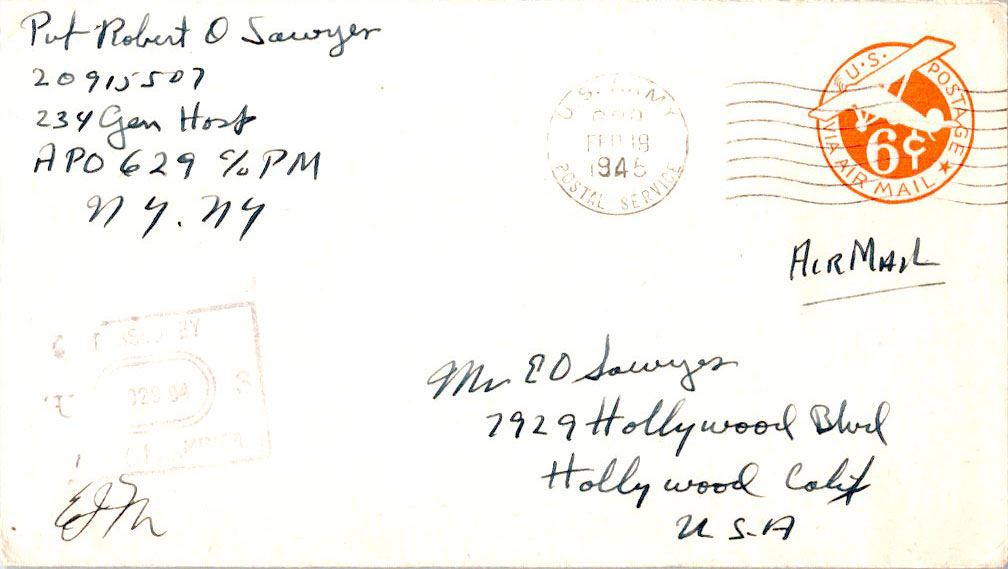 Pvt Robert O Sawyer
20915507
234 Gen Hosp
APO 629 c/o PM
N Y. NY
U.S. ARMY
FEB 19
1945
POSTAL SERVICE
U.S. POSTAGE
6¢
VIA AIR MAIL
AIRMAIL
Mr E O Sawyer
7929 Hollywood Blvd
Hollywood Calif
U S.A
PASSED BY
S